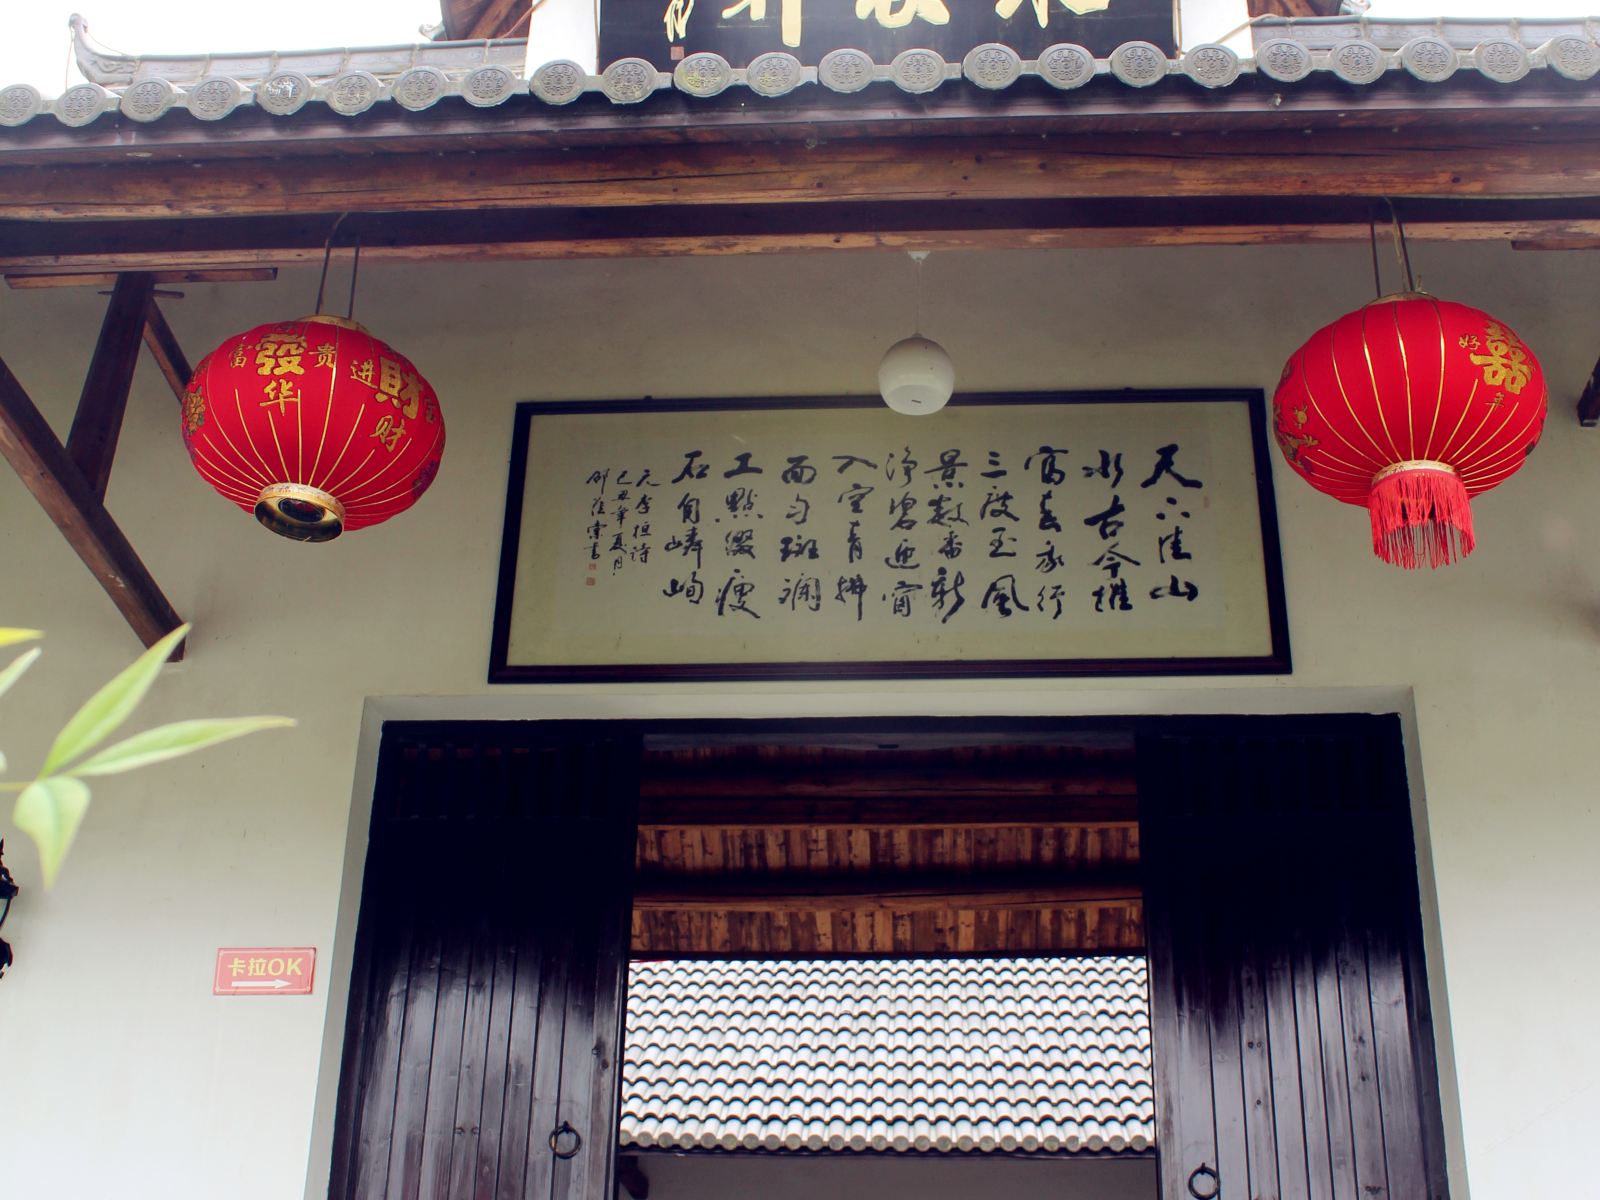 富發贵
华
进財宝
财
好嘉年
天下佳山
水古今推
富春我行
三度至風
景數番新
淨碧迎窗
入空青拂
面勻斑斕
工點綴瘦
石自嶙峋
元李桓詩
己丑年夏月
卡拉OK